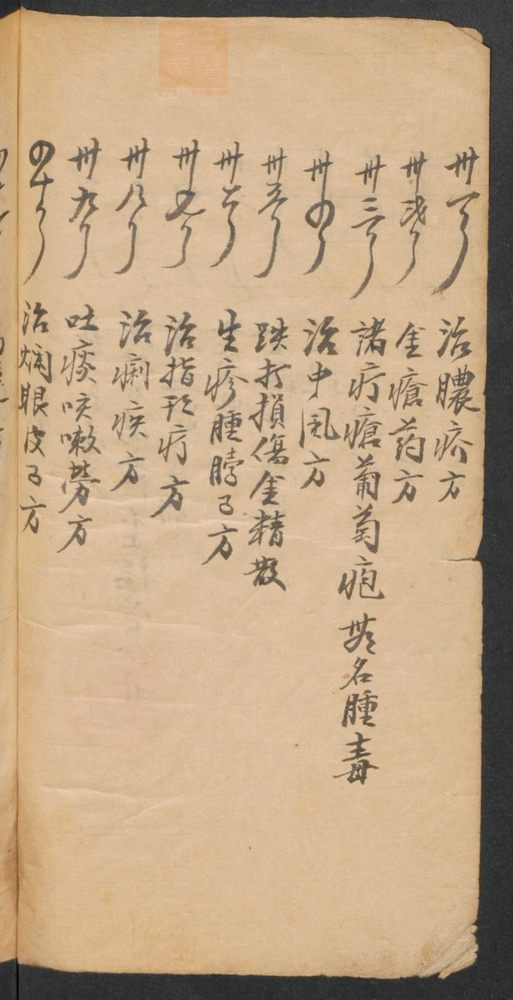 卅一 治膿疥方
卅弍 金瘡药方
卅三 諸疔瘡葡萄疱無名腫毒
卅四 治中風方
卅五 跌打損傷金精散
卅六 生疹腫脖子方
卅七 治指頂疔方
卅八 治痢疾方
卅九 吐痰咳嗽劳方
四十 治烂眼皮子方